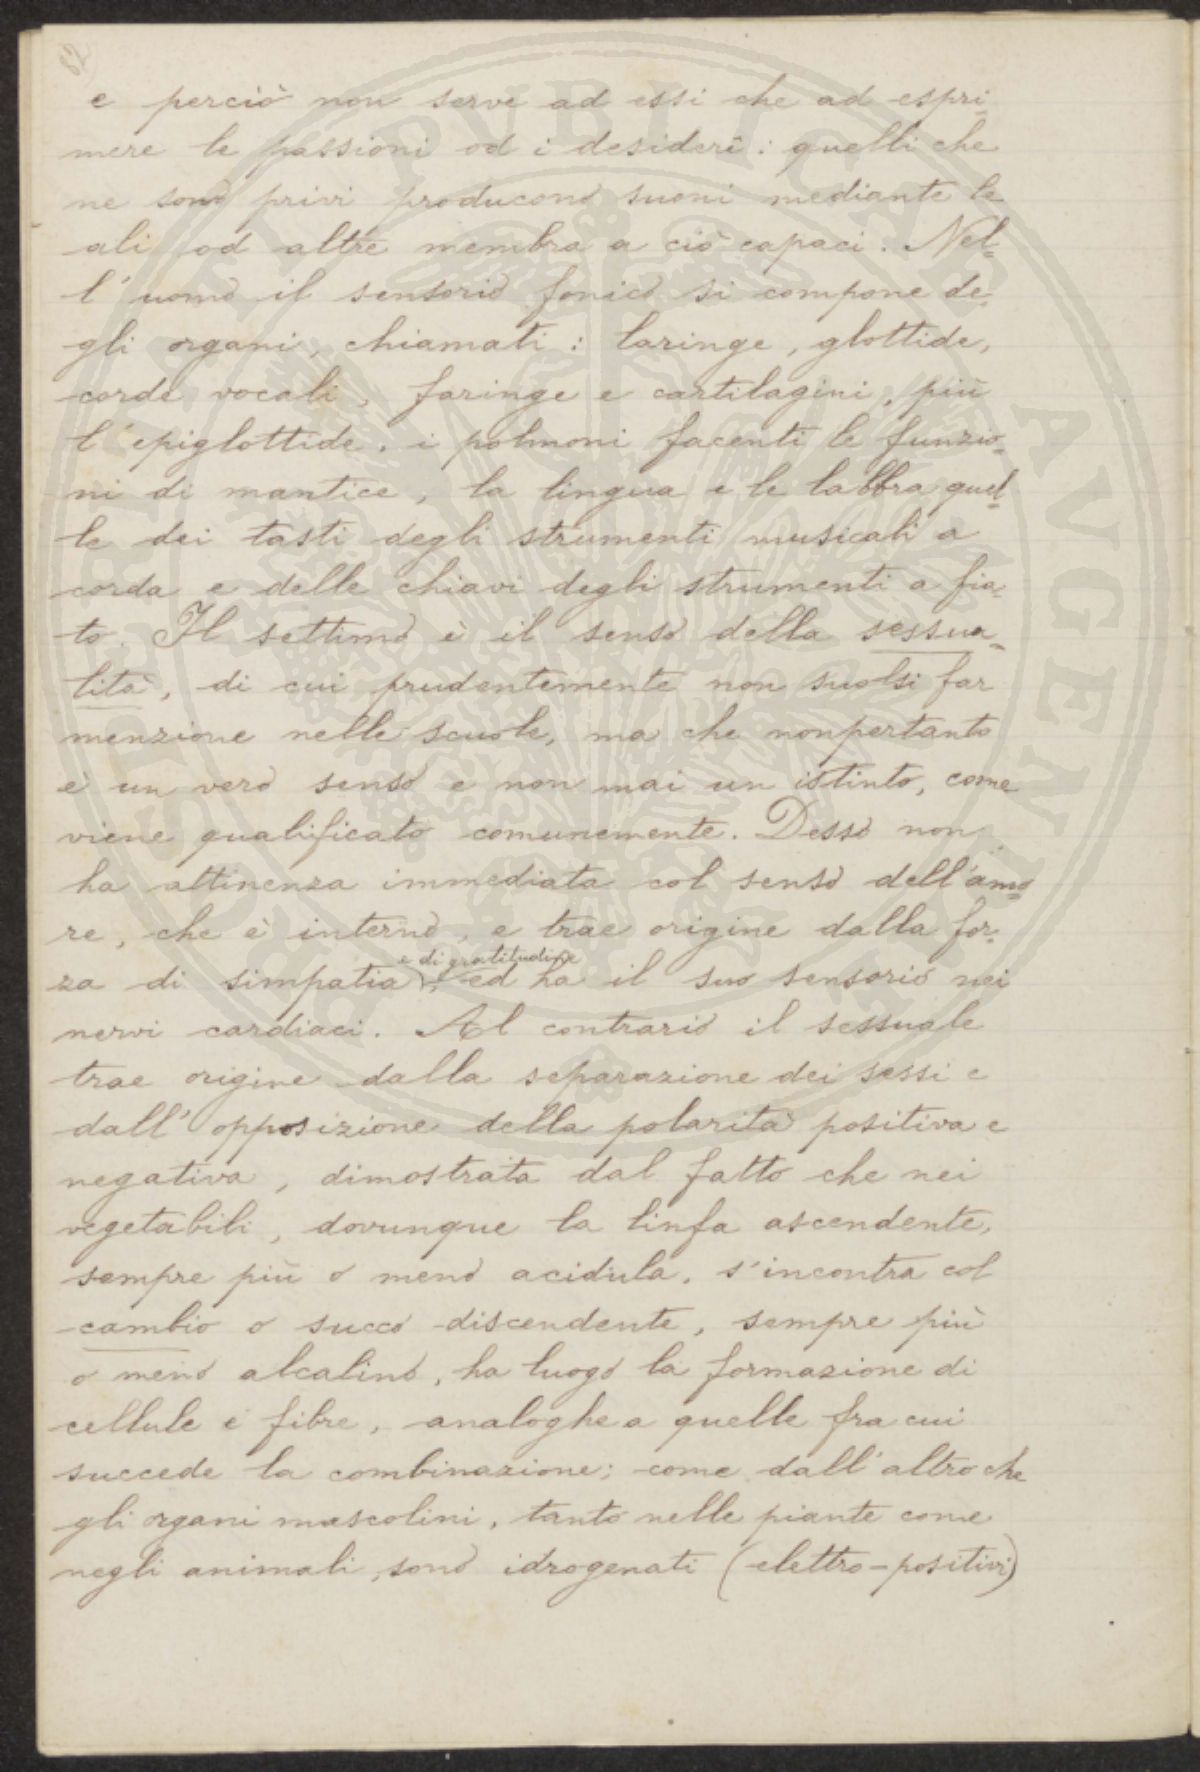 e perciò non serve ad essi che ad espri-
mere le passioni od i desiderî: quelli che
ne sono privi producono suoni mediante le
ali od altre membra a ciò capaci. Nel-
l'uomo il sensorio fonico si compone de-
gli organi, chiamati: laringe, glottide,
corde vocali, faringe e cartilagini, più
l'epiglottide, i polmoni facenti le funzio-
ni di mantice, la lingua e le labbra quel-
le dei tasti degli strumenti musicali a
corda e delle chiavi degli strumenti a fia-
to. Il settimo è il senso della sessua-
lità, di cui prudentemente non suolsi far
menzione nelle scuole, ma che nonpertanto
è un vero senso e non mai un istinto, come
viene qualificato comunemente. Desso non
ha attinenza immediata col senso dell'amo-
re, che è interno, e trae origine dalla for-
e di gratitudine
za di simpatia, ed ha il suo sensorio nei
nervi cardiaci. Al contrario il sessuale
trae origine dalla separazione dei sessi e
dall'opposizione della polarità positiva e
negativa, dimostrata dal fatto che nei
vegetabili, dovunque la linfa ascendente,
sempre più o meno acidula, s'incontra col
cambio o succo discendente, sempre più
o meno alcalino, ha luogo la formazione di
cellule e fibre, analoghe a quelle fra cui
succede la combinazione; come dall'altro che
gli organi mascolini, tanto nelle piante come
negli animali, sono idrogenati (elettro-positivi)